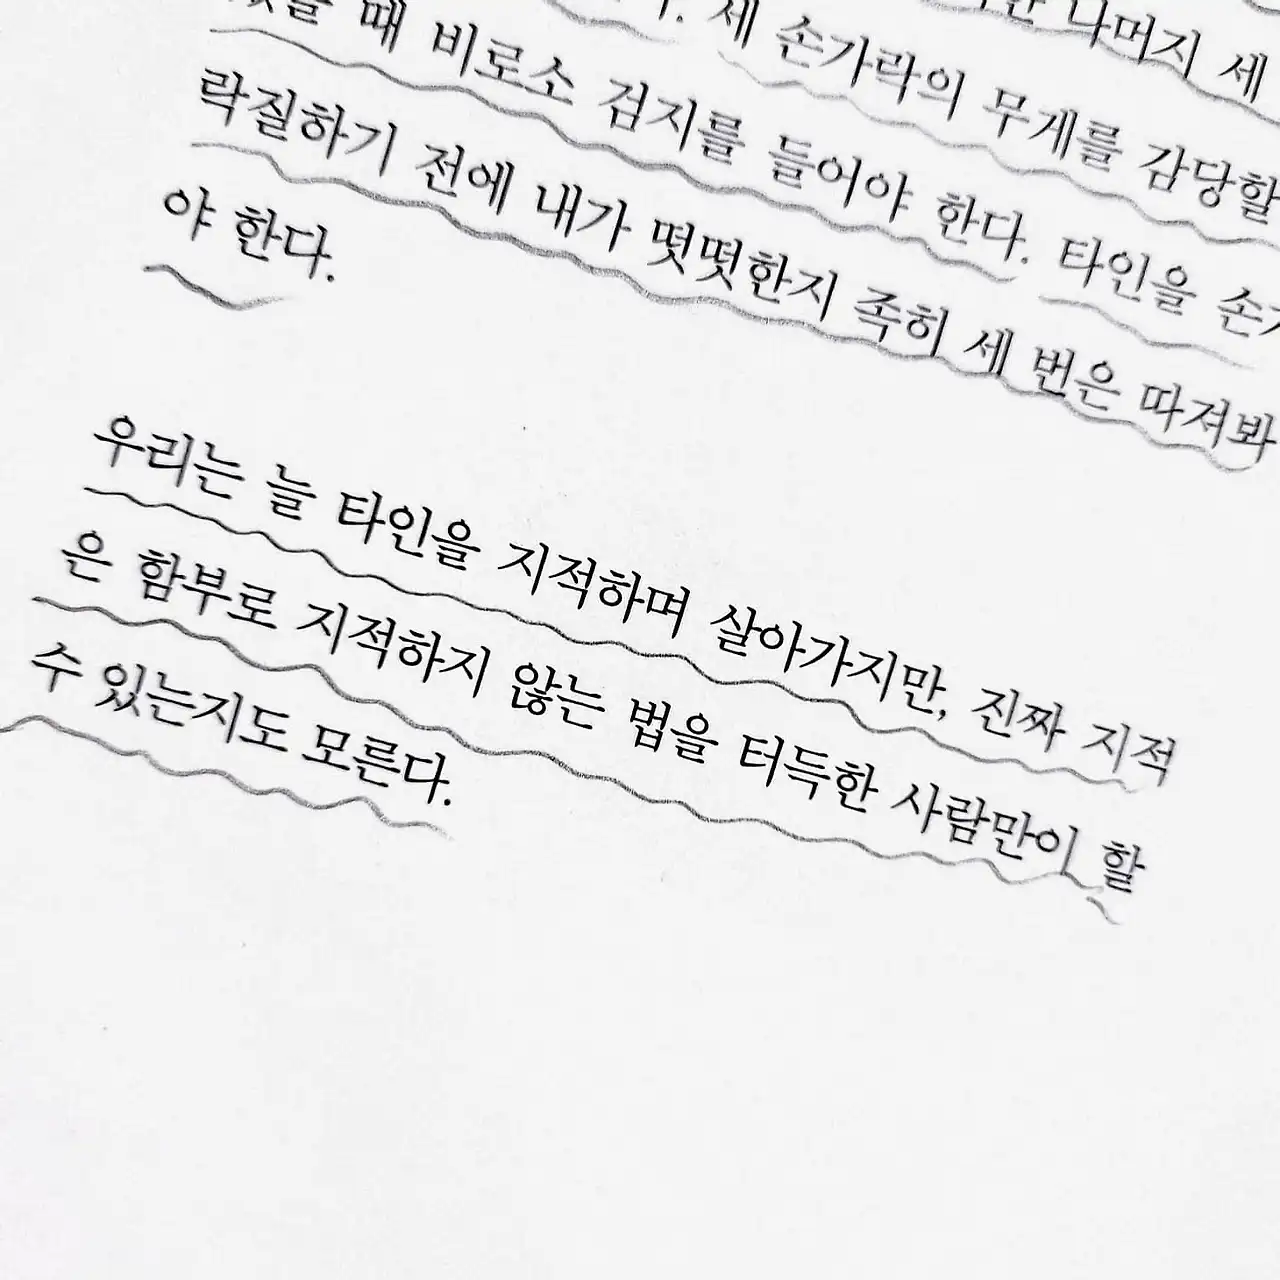 나머지 세
세 손가락의 무게를 감당할
때 비로소 검지를 들어야 한다. 타인을 손가
락질하기 전에 내가 떳떳한지 족히 세 번은 따져봐
야 한다.
우리는 늘 타인을 지적하며 살아가지만, 진짜 지적
은 함부로 지적하지 않는 법을 터득한 사람만이 할
수 있는지도 모른다.